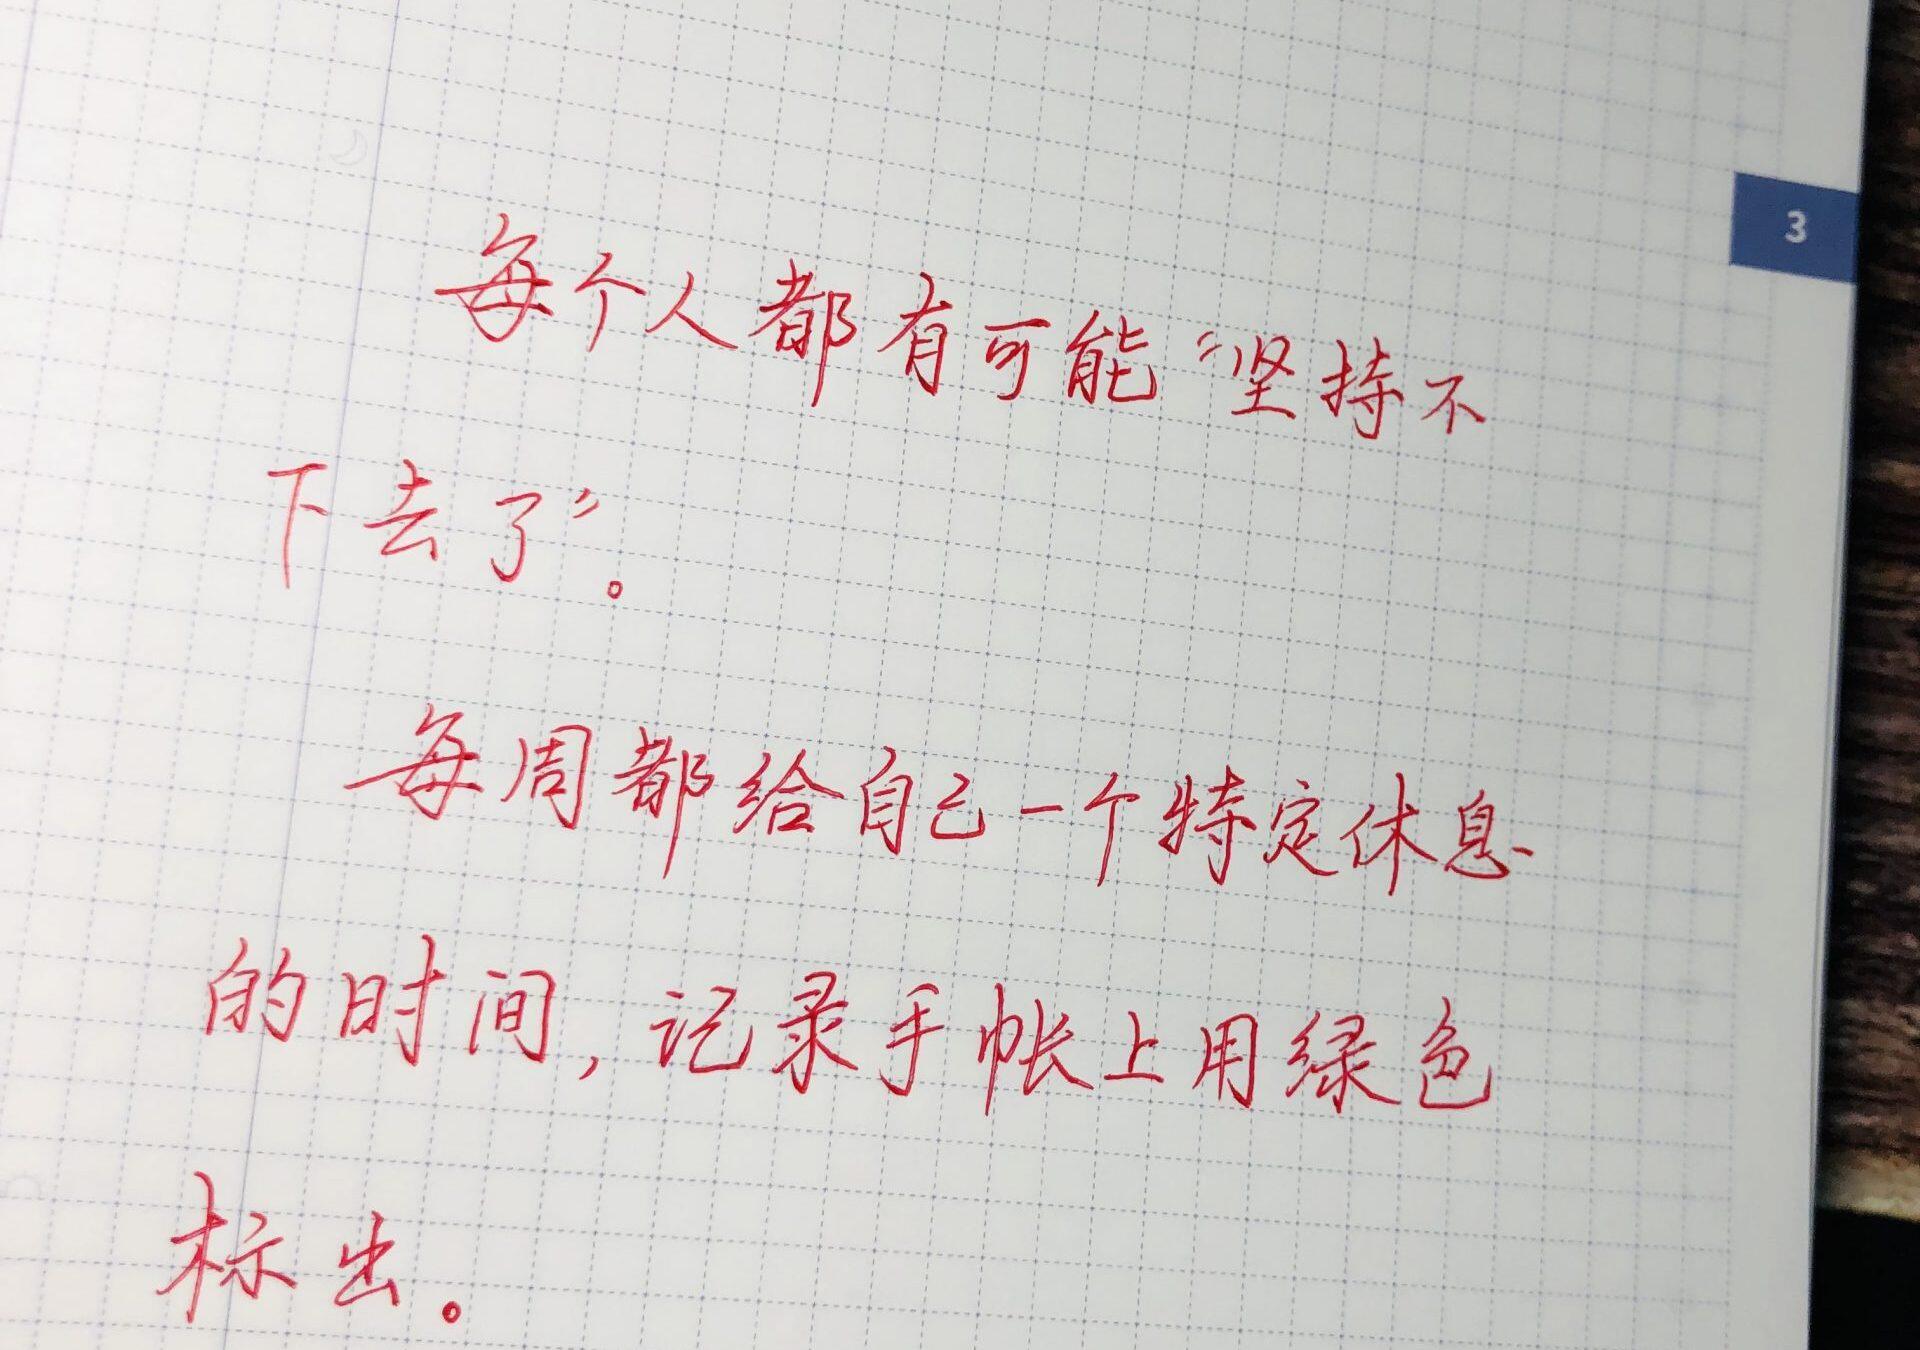 3
每个人都有可能“坚持不
下去了”。
每周都给自己一个特定休息
的时间，记录手帐上用绿色
标出。